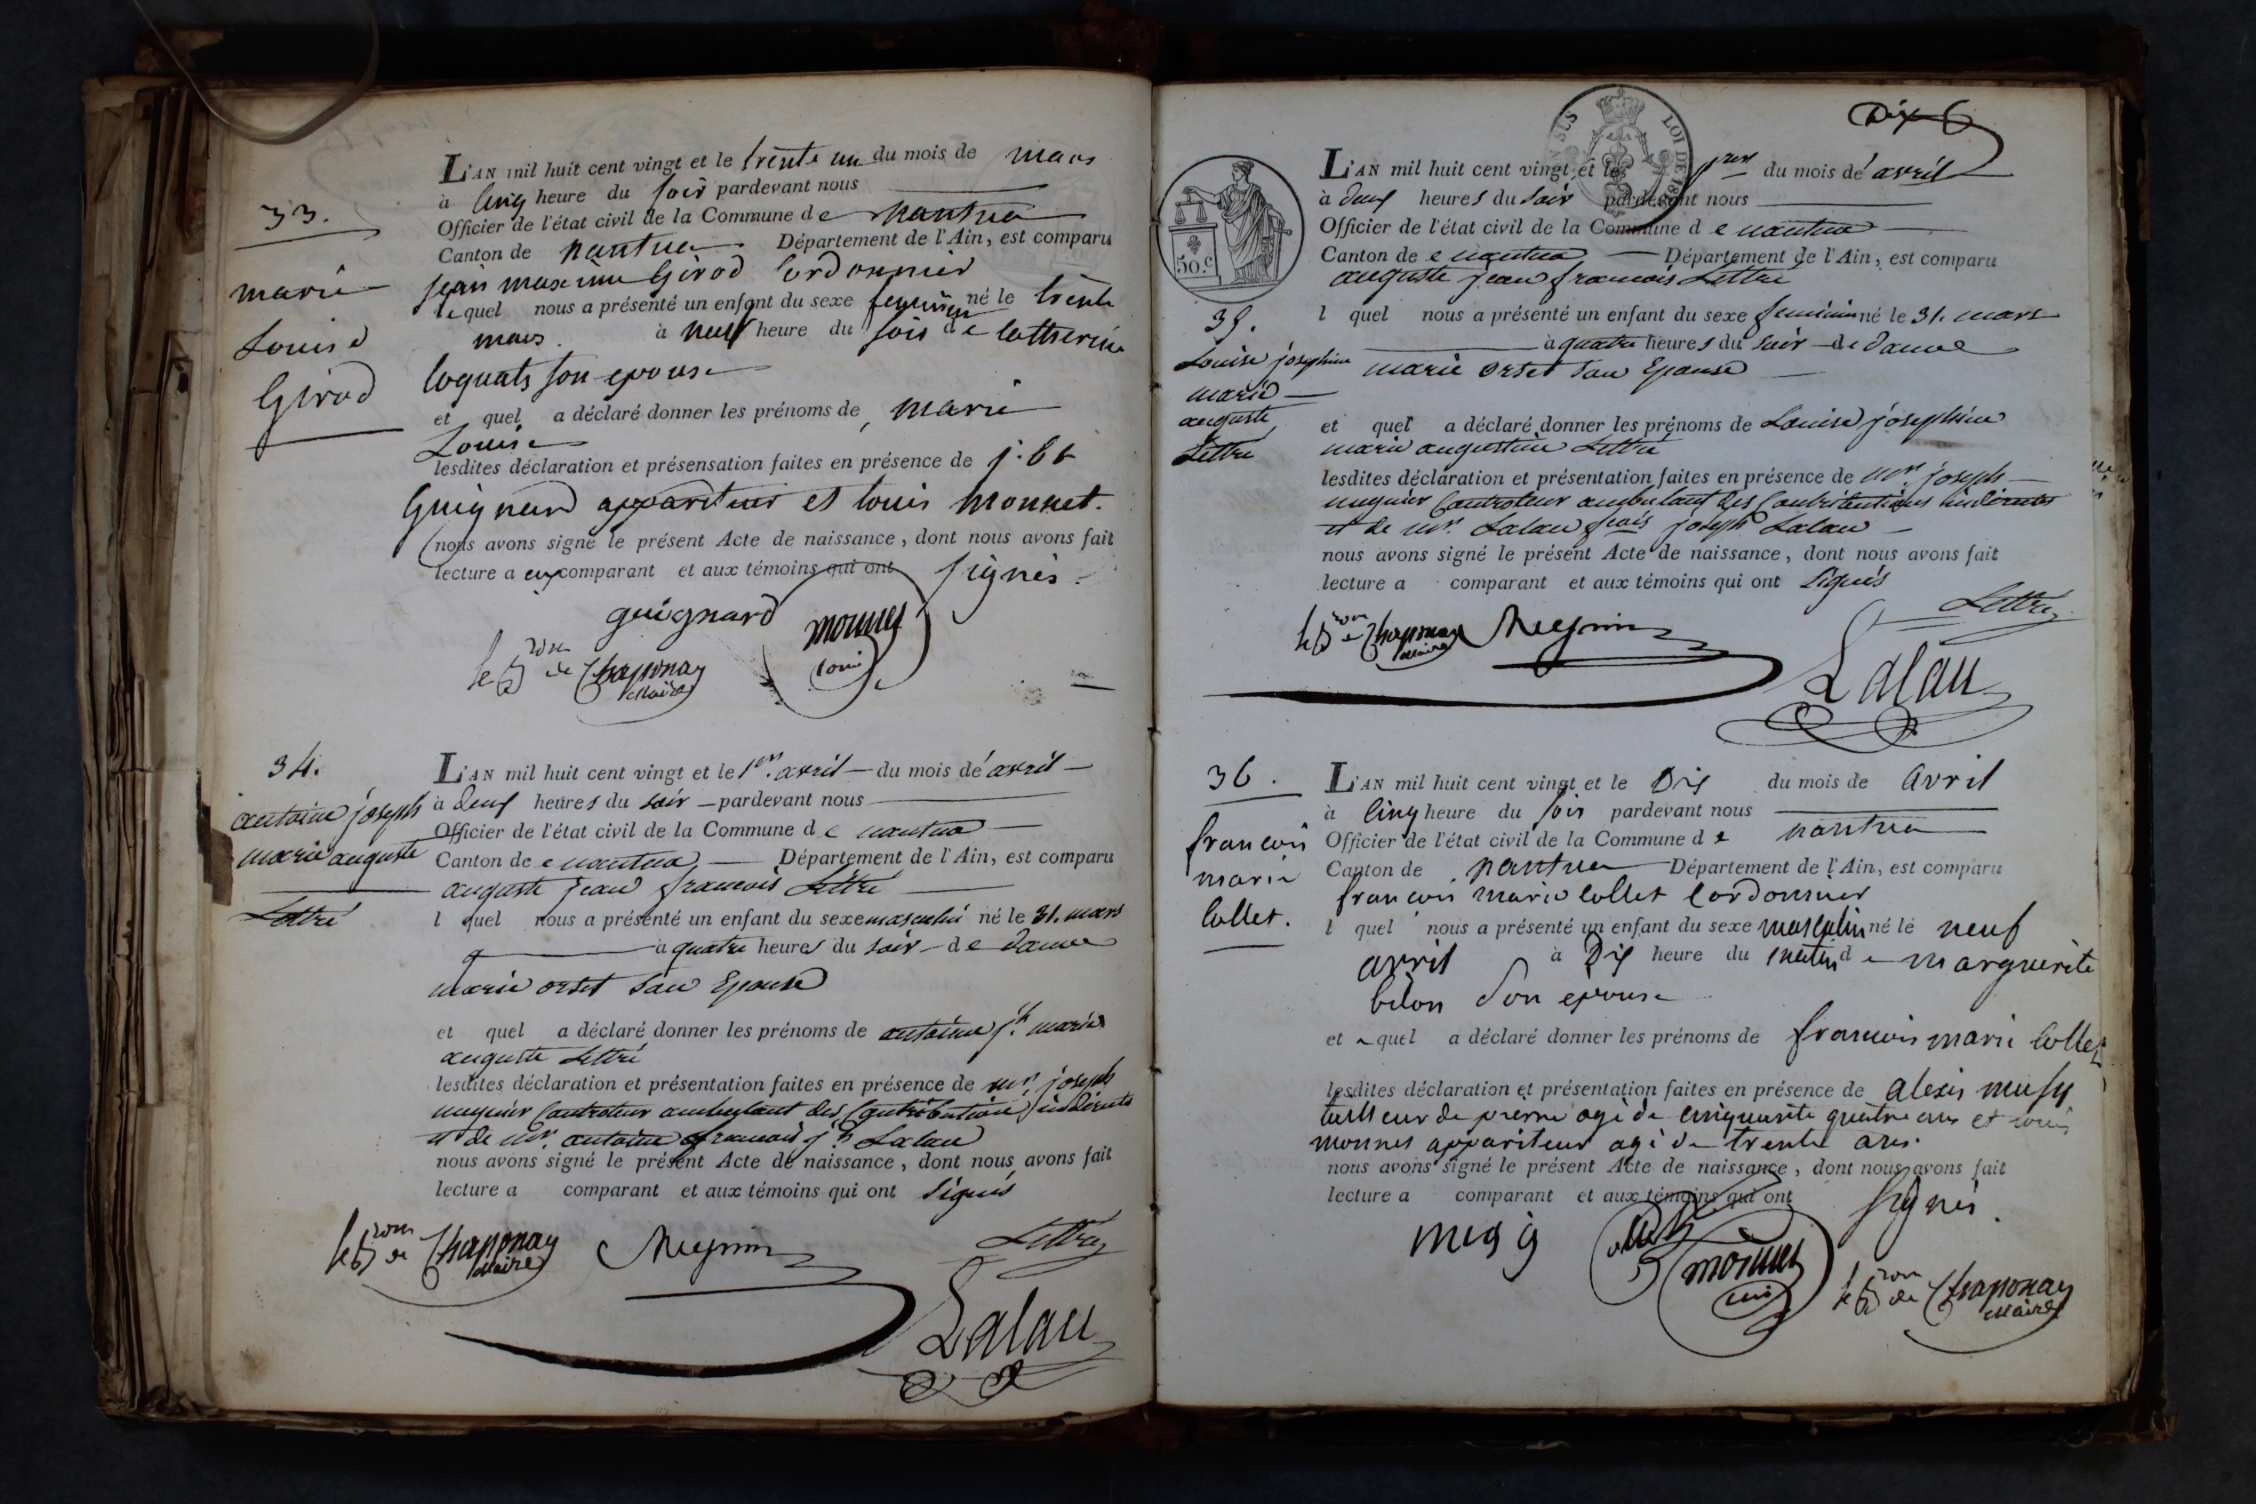 33.
marie
Louise
Girod
L'AN mil huit cent vingt et le trente un du mois de mars
à Cinq heure du soir pardevant nous
Officier de l'état civil de la Commune de nantua
Canton de nantua Département de l'Ain, est comparu
jean maxime Girod Cordonnier
lequel nous a présenté un enfant du sexe feminin né le trente
mars à neuf heure du soir de Catherine
son epouse
et quel a déclaré donner les prénoms de marie
Louise
lesdites déclaration et présensation faites en présence de j. Bte
Guignard appariteur et louis monnet.
nous avons signé le présent Acte de naissance, dont nous avons fait
lecture a eux comparant et aux témoins qui ont signés.
guignard monnet
louis
le Bron de Chaponay
Maire
34.
antoine joseph
marie auguste
Lettré
L'AN mil huit cent vingt et le 1er. avril du mois de avril
à deux heures du soir pardevant nous
Officier de l'état civil de la Commune de nantua
Canton de e nantua Département de l'Ain, est comparu
auguste jean francois Lettré
l quel nous a présenté un enfant du sexe masculin né le 31. mars
à quatre heures du soir de dame
marie orset sau Epouse
et quel a déclaré donner les prénoms de antoine jh. marie
auguste Lettré
lesdites déclaration et présentation faites en présence de mr. joseph
Controleur ambulant des Contributions indirects
et de mr. antoine francois jh Lalau
nous avons signé le présent Acte de naissance, dont nous avons fait
lecture a comparant et aux témoins qui ont signés
le Bron de Chaponay
Maire
Lettré
Lalau
Dix 6
LOI DE 181
50.c
35.
Louise josephine
marie
auguste
Lettré
L'AN mil huit cent vingt et le 1er du mois de avril
à deux heures du soir pardevant nous
Officier de l'état civil de la Commune de nantua
Canton de e nantua Département de l'Ain, est comparu
auguste jean francois Lettré
l quel nous a présenté un enfant du sexe feminin né le 31. mars
à quatre heures du soir de dame
marie orset sau Epouse
et quel a déclaré donner les prénoms de Louise josephine
marie augustine Lettré
lesdites déclaration et présentation faites en présence de mr. joseph
Controleur ambulant des Contributions indirects
et de mr. Lalau fcois joseph Lalau
nous avons signé le présent Acte de naissance, dont nous avons fait
lecture a comparant et aux témoins qui ont signés
Lettré
le Bron de Chaponay
Maire
Lalau
36.
francois
marie
Collet.
L'AN mil huit cent vingt et le Dix du mois de avril
à Cinq heure du soir pardevant nous
Officier de l'état civil de la Commune de nantua
Canton de nantua Département de l'Ain, est comparu
francois marie Collet Cordonnier
l quel nous a présenté un enfant du sexe masculin né le neuf
avril à Dix heure du matin de marguerite
son epouse
et quel a déclaré donner les prénoms de francois marie Collet
lesdites déclaration et présentation faites en présence de alexis
tailleur de pierre agé de cinquante quatre ans et louis
monnet appariteur agé de trente ans.
nous avons signé le présent Acte de naissance, dont nous avons fait
lecture a comparant et aux témoins qui ont signés.
monnet
le Bron de Chaponay
Maire